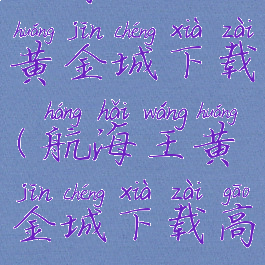 huáng jīn chéng xià zài
黄金城下载
háng hǎi wáng huáng
(航海王黄
jīn chéng xià zài gāo
金城下载高